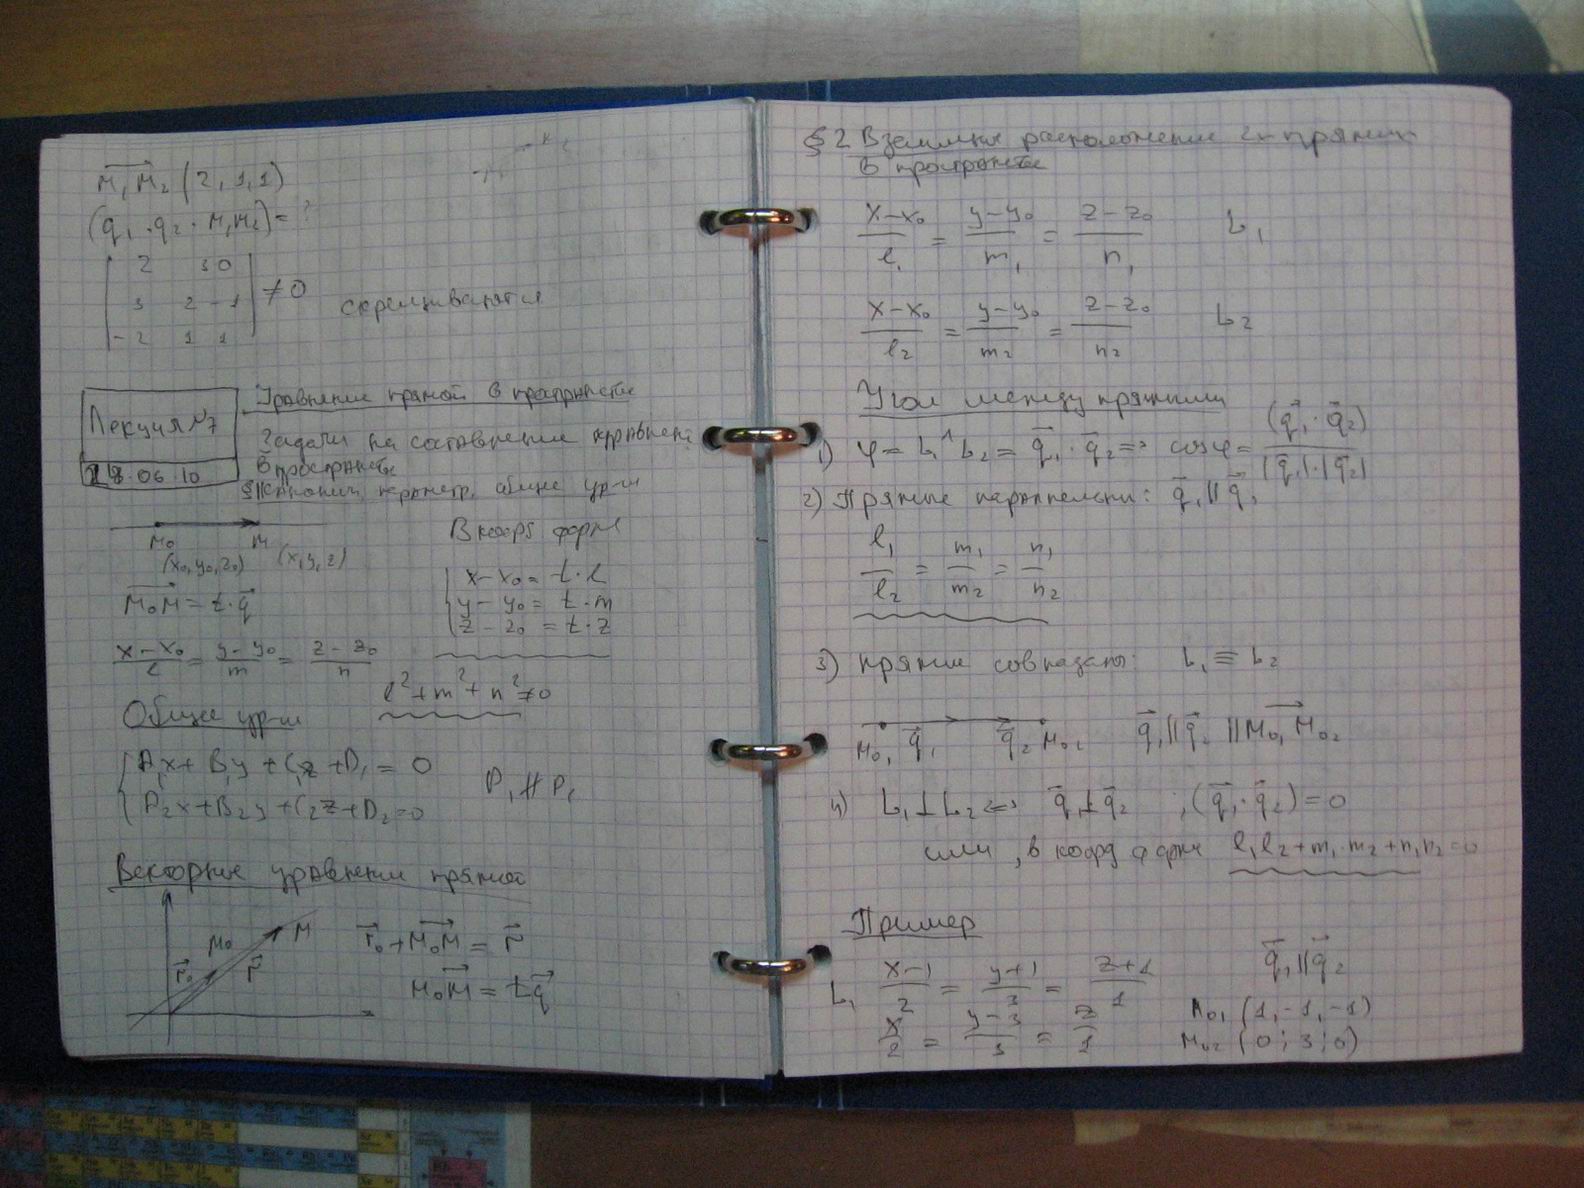 M₁M₂ (2, 1, 1)
(q₁ · q₂ · M₁M₂) = ?
2 3 0
3 2 -1 ≠ 0 скрещиваются
-2 1 1
Лекция №7
06 10
Уравнение прямой в пространстве
Задачи на составление
в пространстве
§1 Канонич, параметр, общие ур-ия
M₀ M
(x₀, y₀, z₀) (x, y, z)
M₀M = t·q
(x - x₀)/l = (y - y₀)/m = (z - z₀)/n
В коорд форме
x - x₀ = t·l
y - y₀ = t·m
z - z₀ = t·z
l² + m² + n² ≠ 0
Общее ур-ие
A₁x + B₁y + C₁z + D₁ = 0
P₂x + B₂y + C₂z + D₂ = 0
Векторные уравнения прямой
M₀ M r₀ r
r₀ + M₀M = r
M₀M = tq
§2 Взаимное расположение 2х прямых
в пространстве
(x - x₀)/l₁ = (y - y₀)/m₁ = (z - z₀)/n₁ L₁
(x - x₀)/l₂ = (y - y₀)/m₂ = (z - z₀)/n₂ L₂
Угол между прямыми
1) φ = L₁^L₂ = q₁ · q₂ => cos φ = (q₁ · q₂)/(|q₁| · |q₂|)
2) Прямые параллельны: q₁ ∥ q₁
l₁/l₂ = m₁/m₂ = n₁/n₂
3) прямые совпадают: L₁ ≡ L₂
M₀₁ q₁ q₂ M₀₂ q₁ ∥ q₂ ∥ M₀₁M₀₂
4) L₁ ⊥ L₂ <=> q₁ ⊥ q₂ ; (q₁ · q₂) = 0
или, в коорд форме l₁l₂ + m₁·m₂ + n₁n₂ = 0
Пример
L₁ (x - 1)/2 = (y + 1)/3 = (z + 1)/1 q₁ ∥ q₂
x/2 = (y - 3)/3 = z/1
M₀₁ (1, -1, -1)
M₀₂ (0; 3; 0)